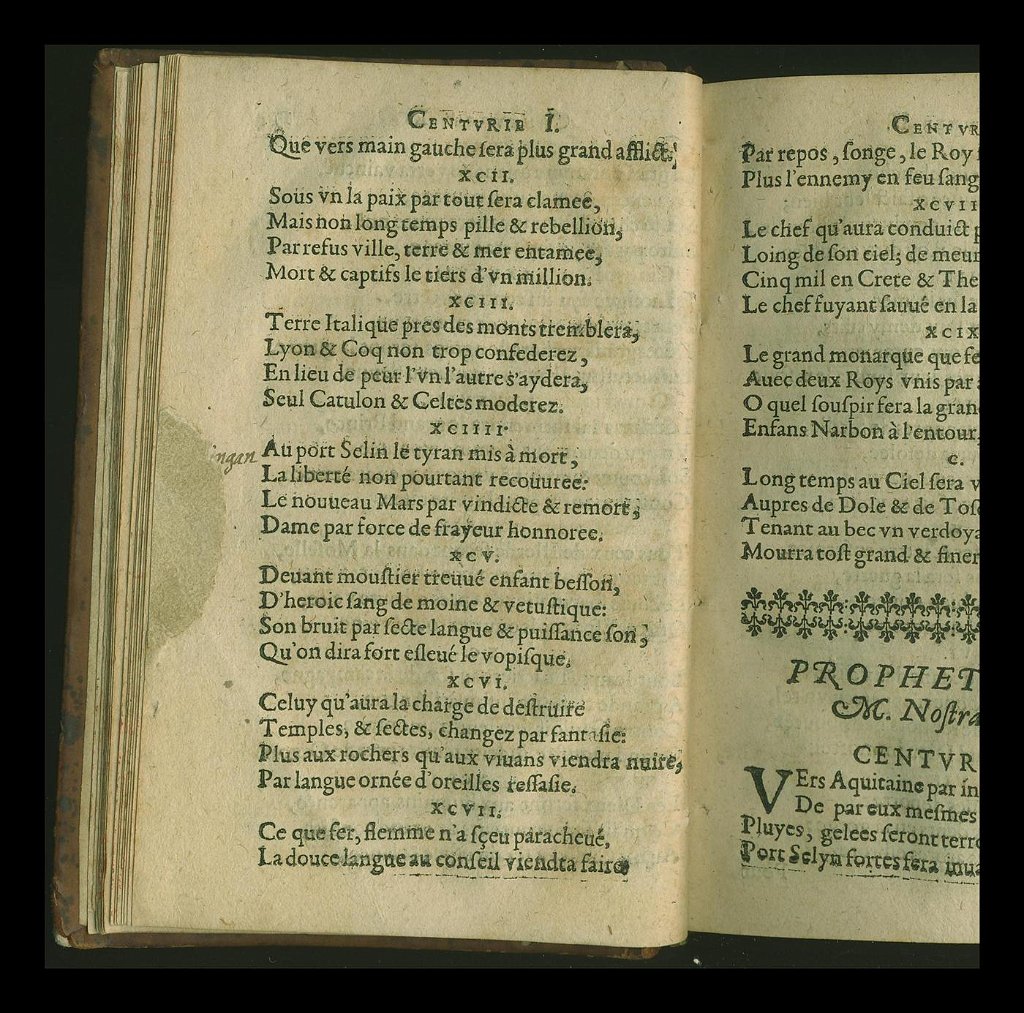 CENTVRIE I.
Que vers main gauche ſera plus grand afflict.
XCII.
Sous vn la paix par tout ſera clamee,
Mais non long temps pille & rebellion,
Par refus ville, terre & mer entamee,
Mort & captifs le tiers d'vn million.
XCIII.
Terre Italique pres des monts tremblera,
Lyon & Coq non trop confederez,
En lieu de peur l'vn l'autre s'aydera,
Seul Catulon & Celtes moderez.
XCIIII.
Au port Selin le tyran mis à mort,
La liberté non pourtant recouuree:
Le nouueau Mars par vindicte & remort,
Dame par force de frayeur honnoree.
XCV.
Deuant mouſtier treuué enfant beſſon,
D'heroic ſang de moine & vetuſtique:
Son bruit par ſecte langue & puiſſance ſon,
Qu'on dira fort eſleué le vopiſque.
XCVI.
Celuy qu'aura la charge de deſtruire
Temples, & ſectes, changez par fantaſie:
Plus aux rochers qu'aux viuans viendra nuire,
Par langue ornée d'oreilles reſſaſie.
XCVII.
Ce que fer, flemme n'a ſçeu paracheué,
La douce langue au conſeil viendra faire
CENTVR
Par repos, ſonge, le Roy
Plus l'ennemy en feu ſang
XCVII
Le chef qu'aura conduict
Loing de ſon ciel; de meur
Cinq mil en Crete & The
Le chef fuyant ſauué en la
XCIX
Le grand monarque que fe
Auec deux Roys vnis par
O quel ſouſpir fera la gran
Enfans Narbon à l'entour,
C.
Long temps au Ciel ſera v
Aupres de Dole & de Toſc
Tenant au bec vn verdoya
Mourra toſt grand & finer
PROPHET
M. Noſtra
CENTVR
VErs Aquitaine par in
De par eux meſmes
Pluyes, gelees ſeront terro
Port Selyn fortes fera inua